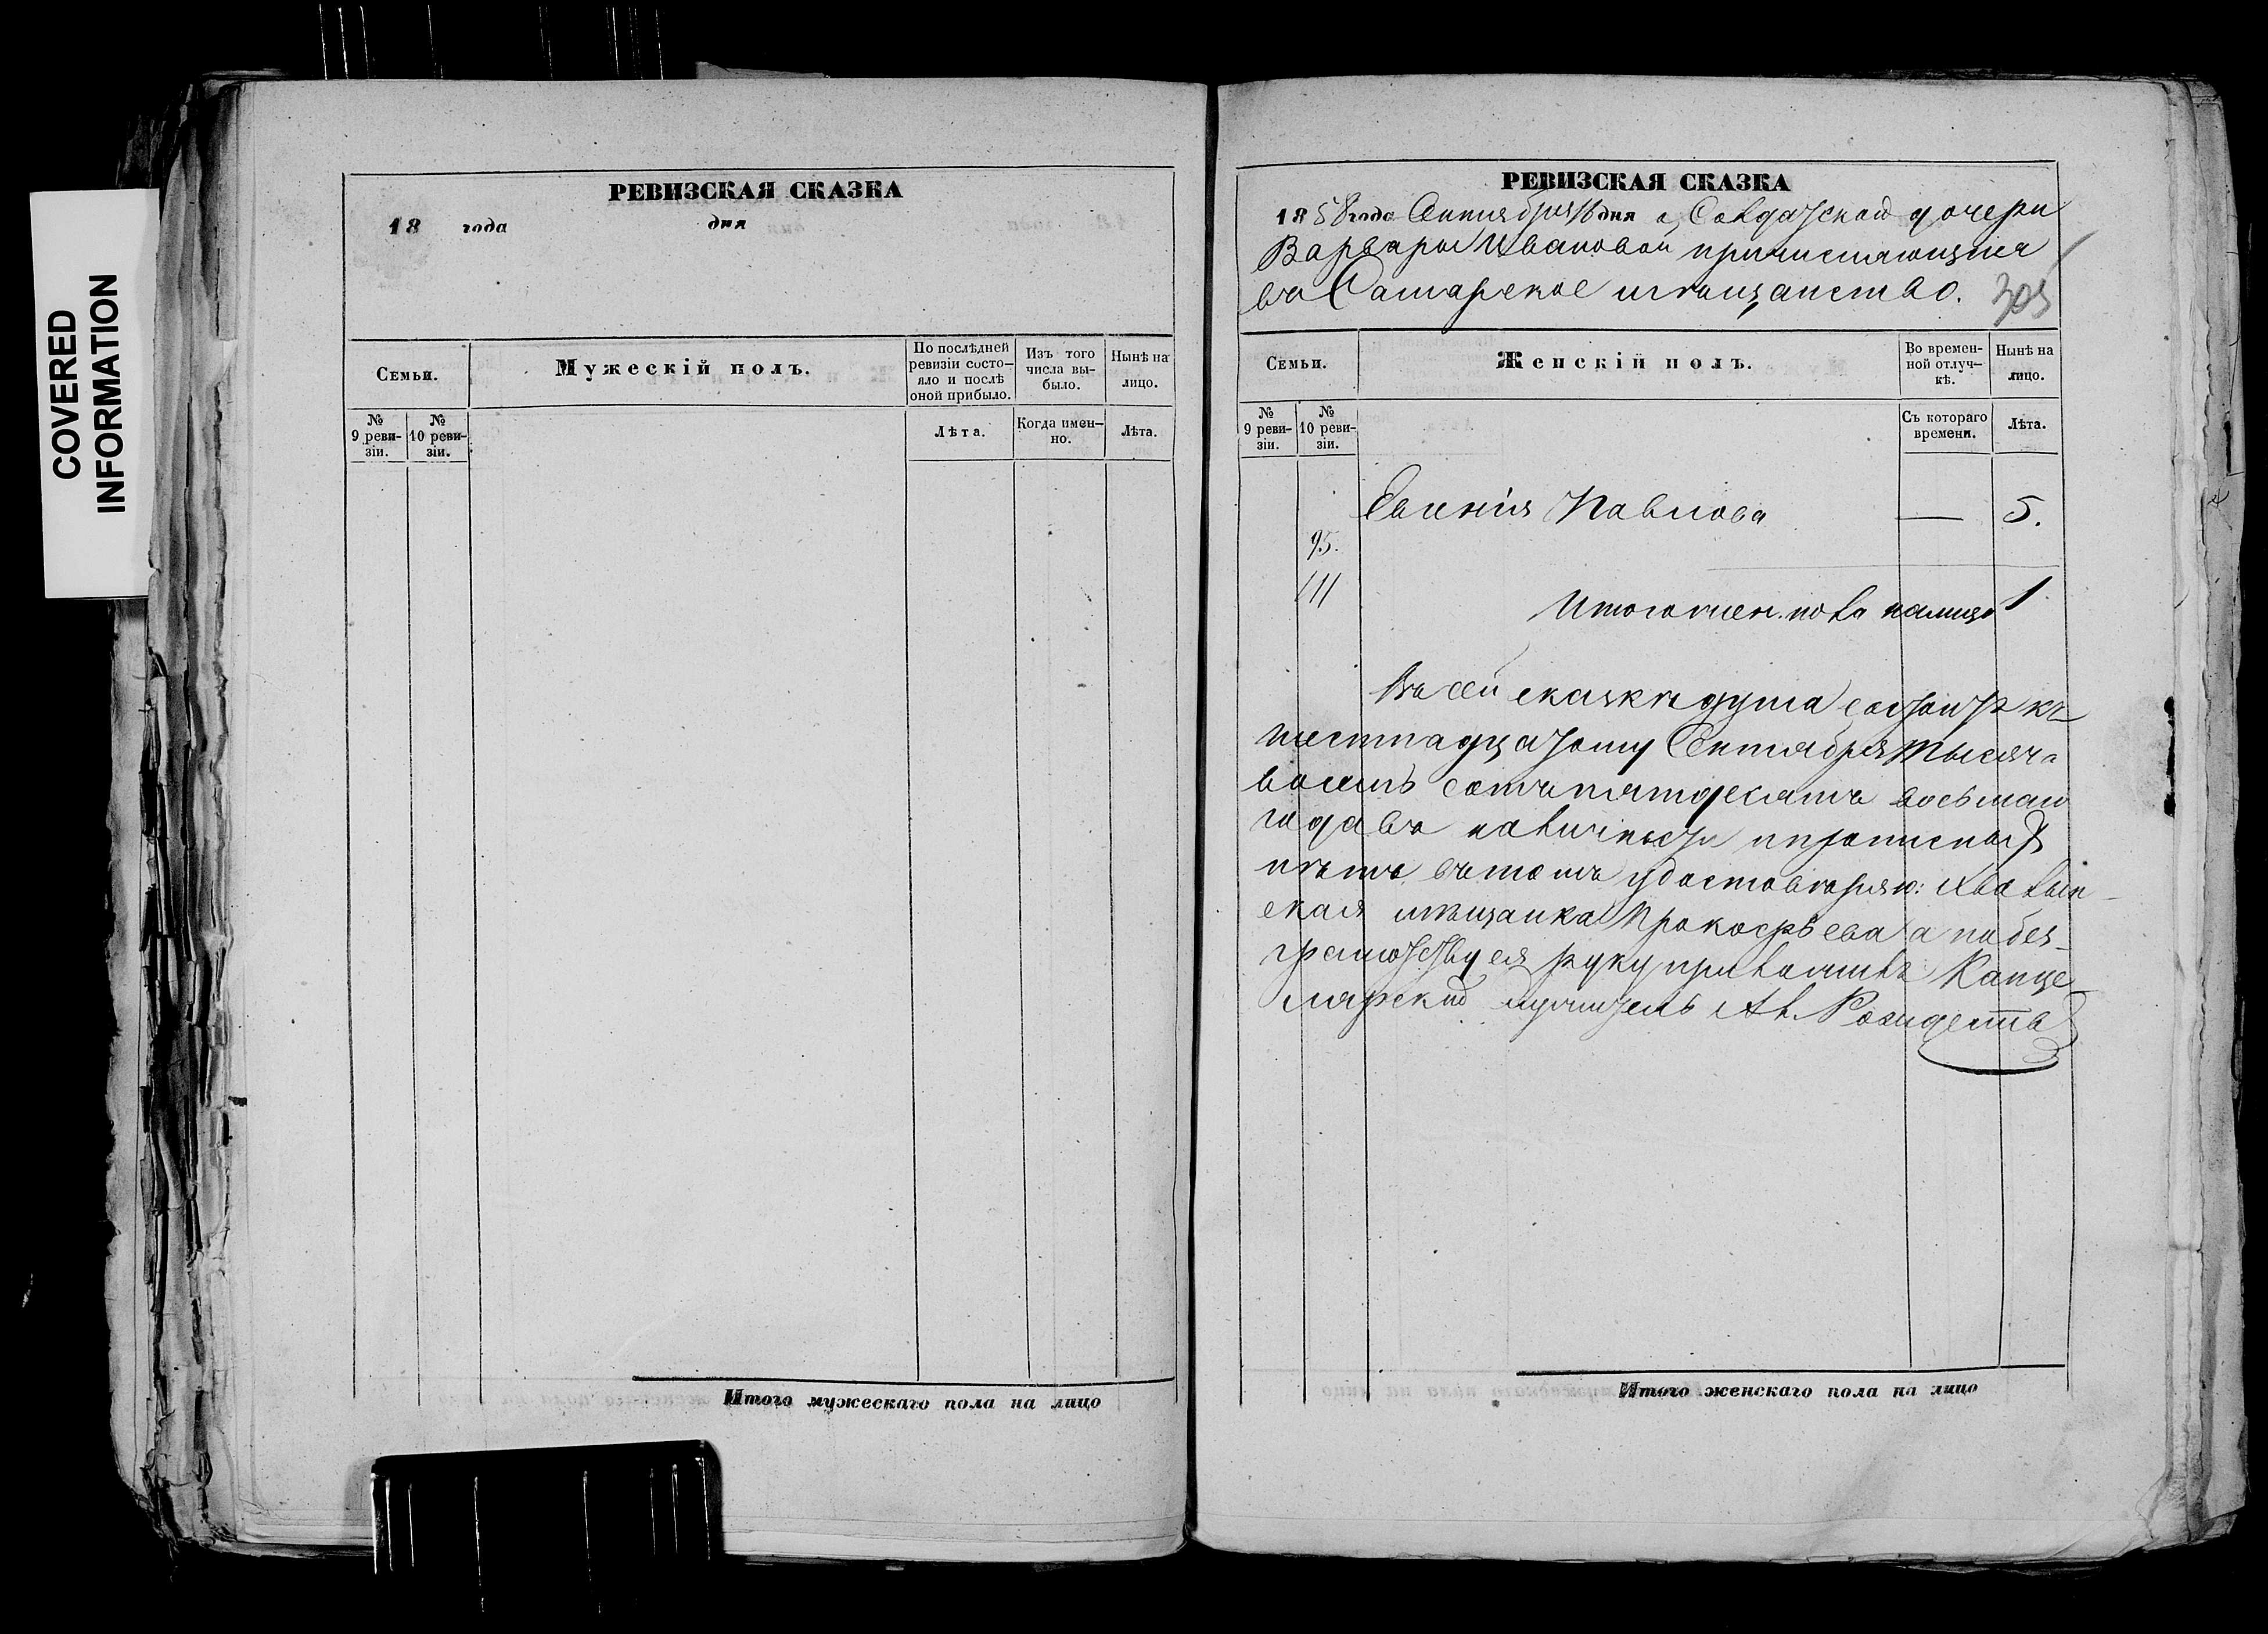 COVERED
INFORMATION
РЕВИЗСКАЯ СКАЗКА
18 года дня
Семьи.
Мужескій полъ.
По послѣдней ревизіи состо-яло и послѣ оной прибыло.
Изъ того числа вы-было.
Нынѣ на лицо.
№ 9 реви-зіи.
№ 10 реви-зіи.
Лѣта.
Когда имен-но.
Лѣта.
Итого мужескаго пола на лицо
РЕВИЗСКАЯ СКАЗКА
1858 года Сентября 16 дня о Солдатской дочери
Варвары Ивановой причисляющейся
въ Самарское мѣщанство.
305
Семьи.
Женскій полъ.
Во времен-ной отлуч-кѣ.
Нынѣ на лицо.
№ 9 реви-зіи.
№ 10 реви-зіи.
Съ котораго времени.
Лѣта.
Евгенія Павлова — 5.
95.
111
Итого жен. пола налицо 1
Въ сей сказкѣ душа состоит къ
шестнадцатому Сентября тысяча
восемь сотъ пятдесятъ восьмаго
года въ наличности и прописных
нѣтъ въ томъ удостовѣряю: Хвалын-
ская мѣщанка Прокофьева а по без-
грамотству ея руку приложилъ Канце
лярский служитель Ал. Рождеств
Итого женскаго пола на лицо